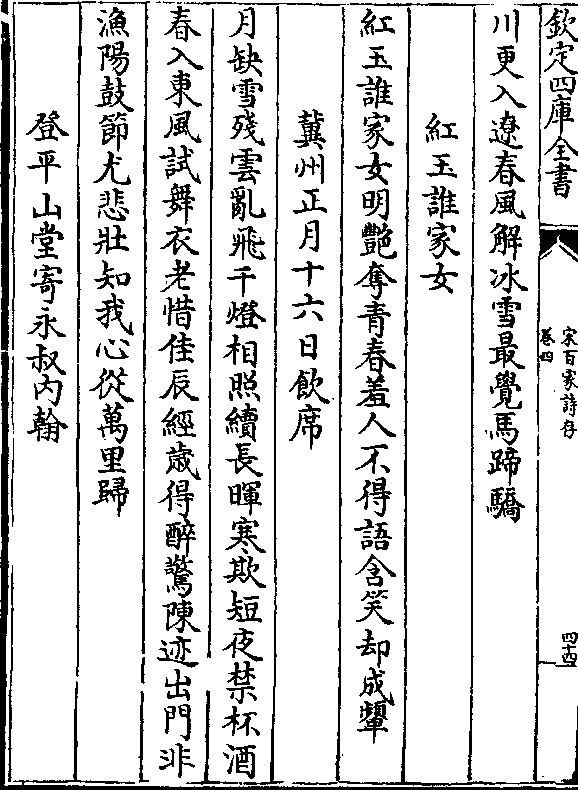 欽定四庫全書
宋百家詩存
卷四
四十四
川更入遼春風解冰雪最覺馬蹄驕
紅玉誰家女
紅玉誰家女明艷奪青春羞人不得語含笑却成顰
冀州正月十六日飲席
月缺雪殘雲亂飛千燈相照續長暉寒欺短夜禁杯酒
春入東風試舞衣老惜佳辰經歲得醉驚陳迹出門非
漁陽鼓節尤悲壯知我心從萬里歸
登平山堂寄永叔内翰